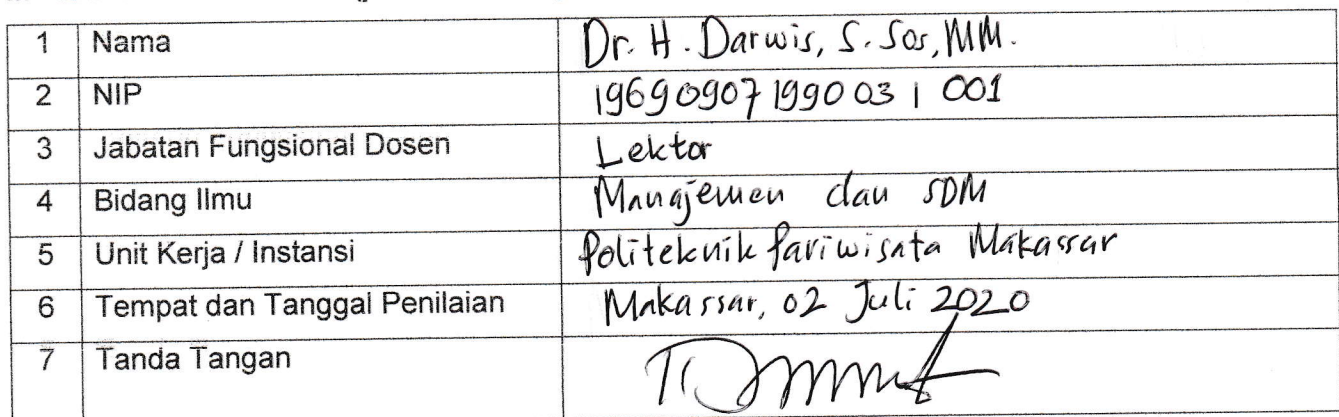 1 Nama Dr. H. Darwis, S. Sos, MM.
2 NIP 19690907 199003 1 001
3 Jabatan Fungsional Dosen Lektor
4 Bidang Ilmu Manajemen dan SDM
5 Unit Kerja / Instansi Politeknik Pariwisata Makassar
6 Tempat dan Tanggal Penilaian Makassar, 02 Juli 2020
7 Tanda Tangan